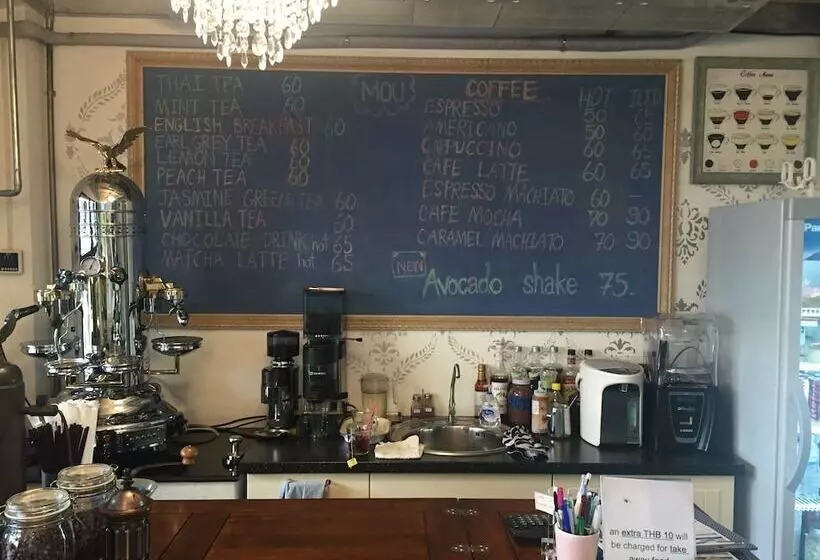 THAI TEA 60
MINT TEA 60
ENGLISH BREAKFAST 60
EARL GREY TEA 60
LEMON TEA 60
PEACH TEA 60
JASMINE GREEN TEA 60
VANILLA TEA 60
CHOCOLATE DRINK hot 65
MATCHA LATTE hot 65
MOU
COFFEE HOT
ESPRESSO 50 65
AMERICANO 50 60
CAPUCCINO 60 65
CAFE LATTE 60 65
ESPRESSO MACHIATO 60 -
CAFE MOCHA 70 90
CARAMEL MACHIATO 70 90
NEW Avocado shake 75.-
Coffee Menu
Pan
an extra THB 10 will
be charged for take
away food